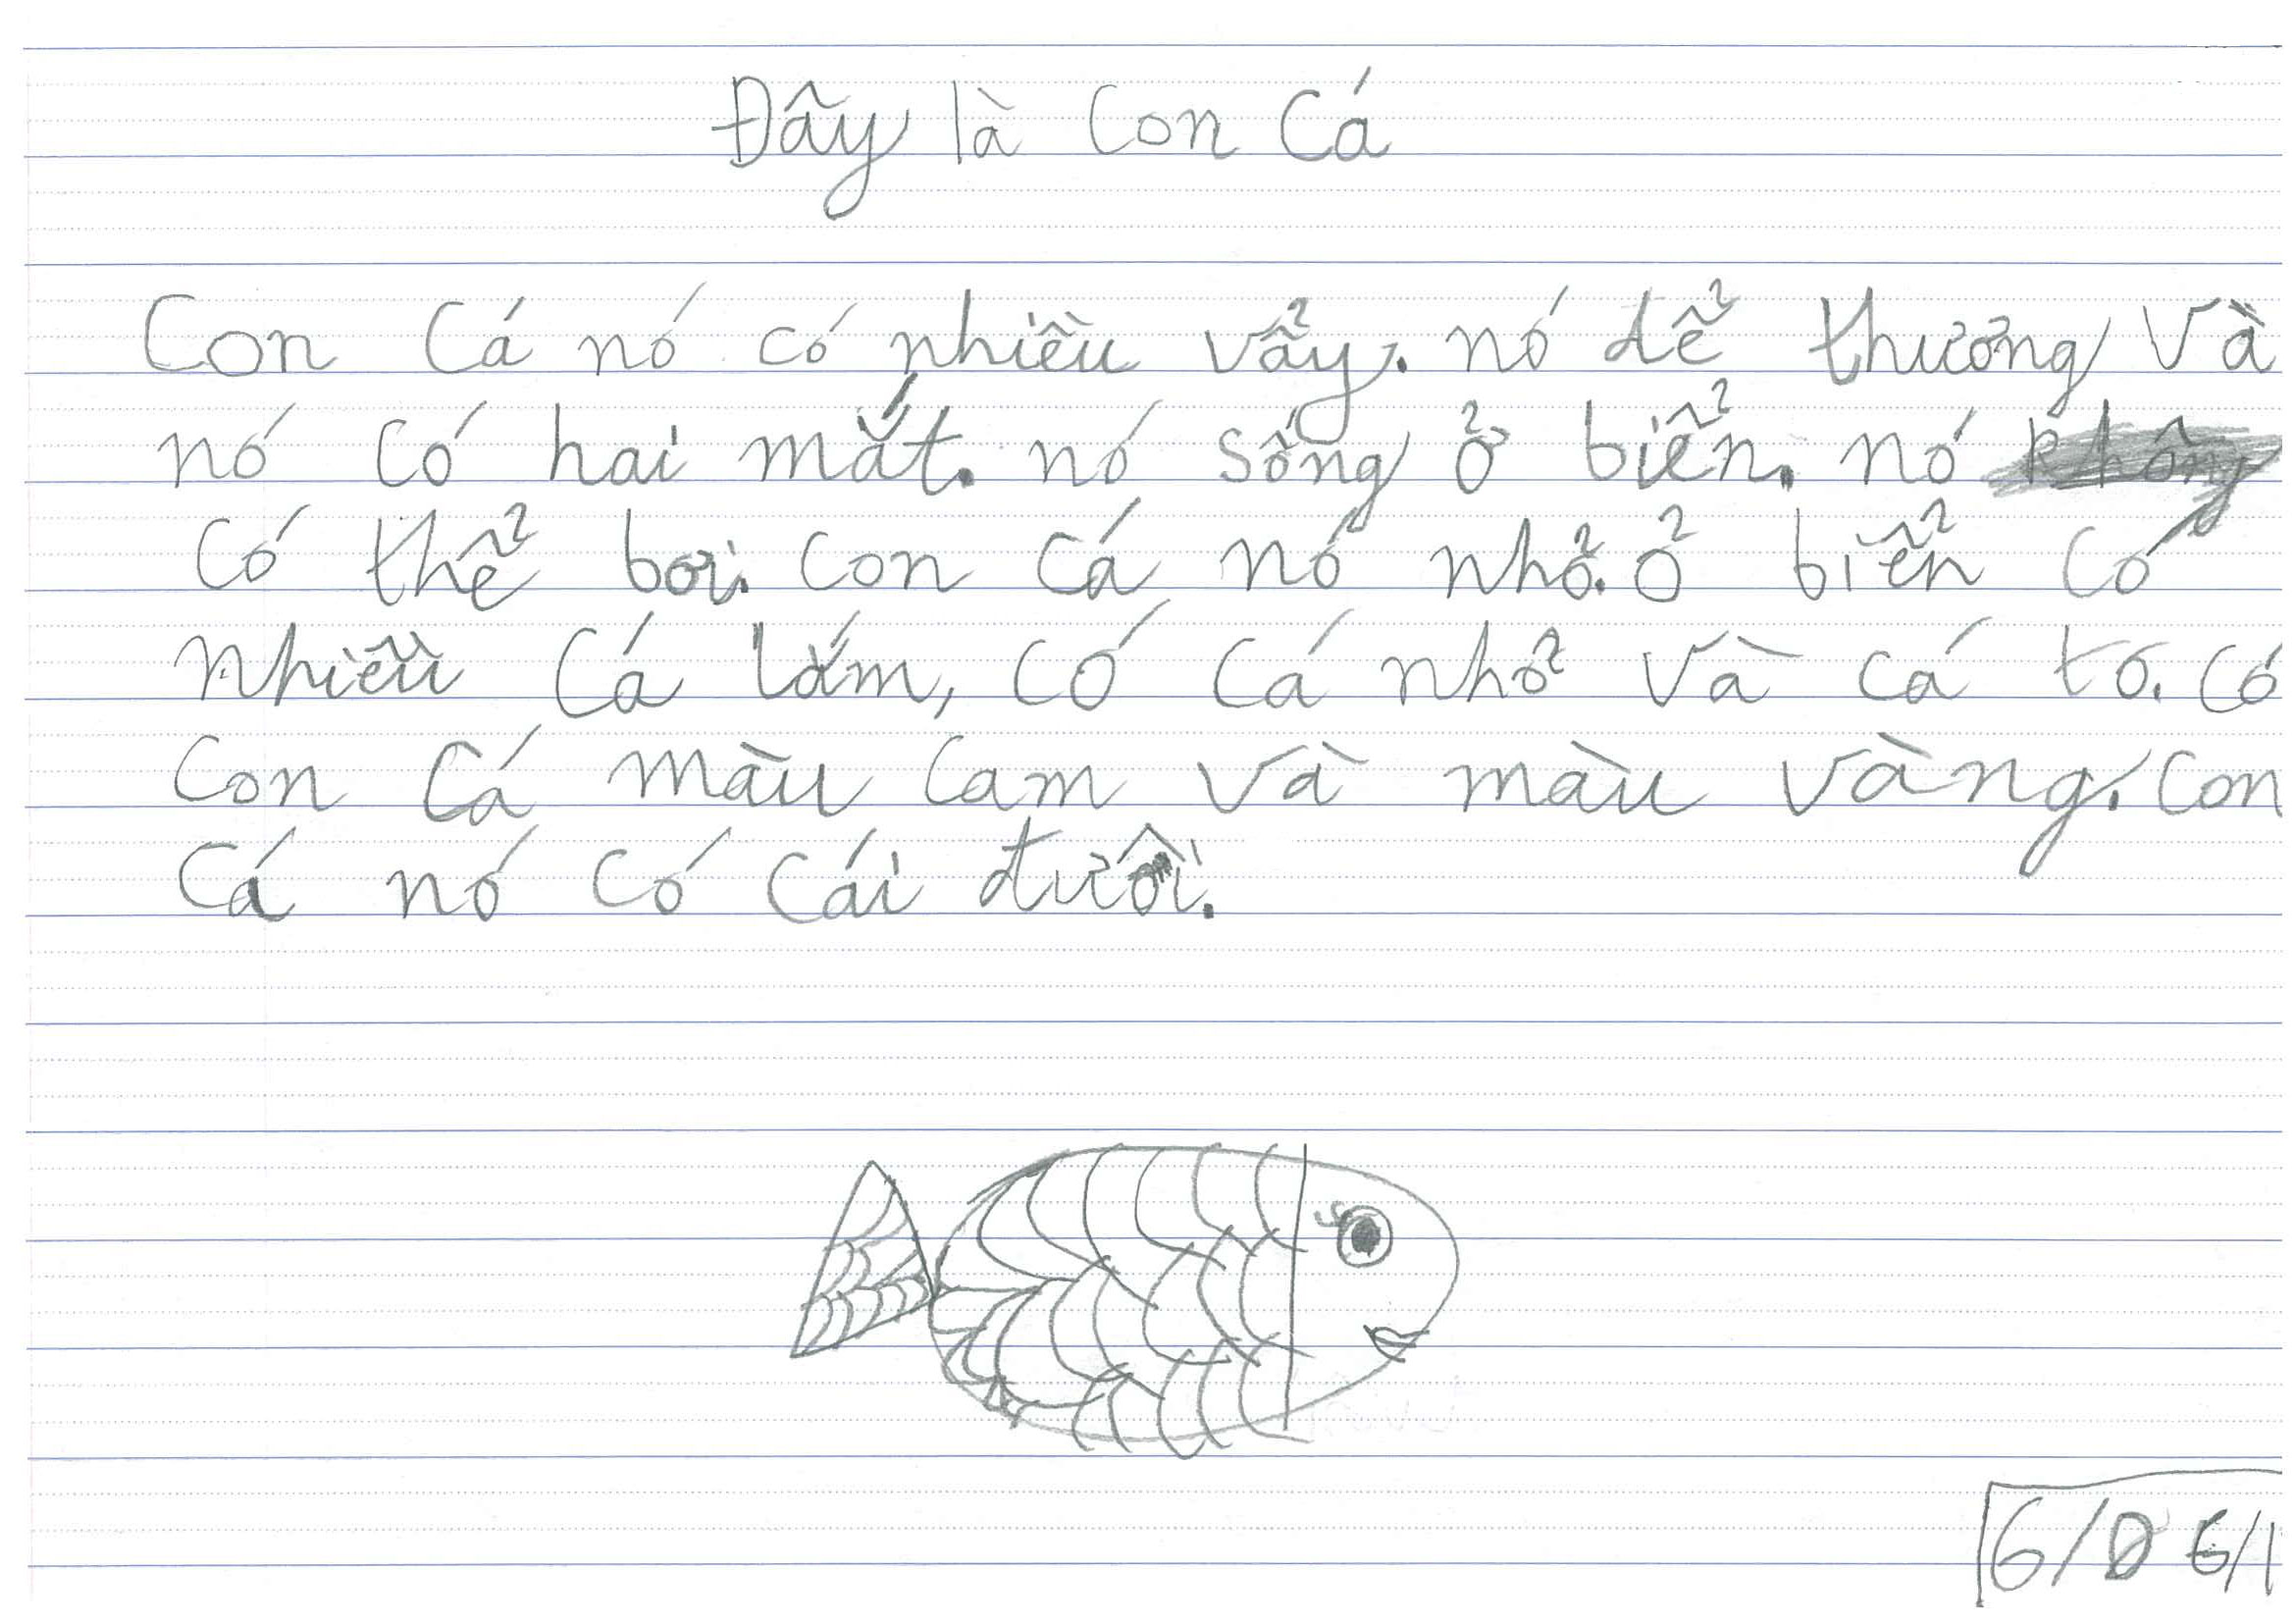 Đây là Con Cá
Con Cá nó có nhiều vẩy. nó dể thương Và
nó có hai mắt. nó sống ở biển. nó
có thể bơi. Con cá nó nhỏ. ở biển có
nhiều cá lắm, có cá nhỏ và cá to. có
con cá màu cam và màu vàng. con
cá nó có cái đuôi.